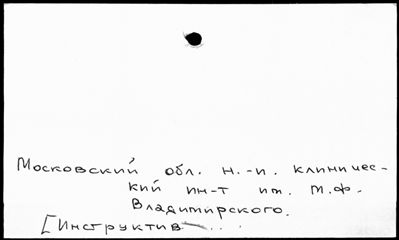 Московский обл. н.-и. клиничес-
кий ин-т им. М.Ф.
Владимирского.
[Инструктив...